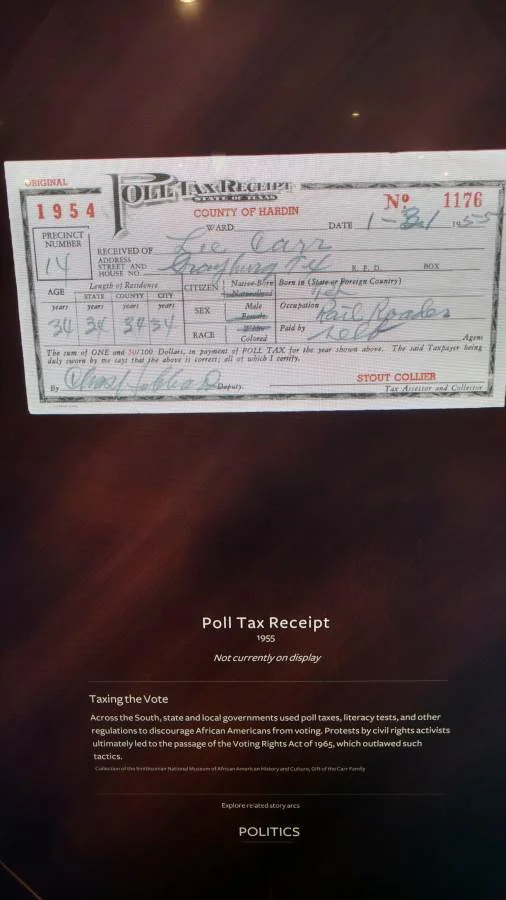 ORIGINAL
POLL TAX RECEIPT
STATE OF TEXAS
1954
COUNTY OF HARDIN
Nº 1176
WARD
DATE 1-31 1955
PRECINCT NUMBER
14
RECEIVED OF Lee Carr
ADDRESS STREET AND HOUSE NO. Grayburg Tex R. F. D. BOX
AGE
Length of Residence
STATE COUNTY CITY
years years years years
34 34 34 34
CITIZEN
Native-Born
Naturalized
Born in (State or Foreign Country)
Tex
SEX
Male
Female
Occupation Rail Roader
RACE
White
Colored
Paid by Self Agent
The sum of ONE and 50/100 Dollars, in payment of POLL TAX for the year shown above. The said Taxpayer being
duly sworn by me says that the above is correct; all of which I certify.
By Deputy.
STOUT COLLIER
Tax Assessor and Collector
Poll Tax Receipt
1955
Not currently on display
Taxing the Vote
Across the South, state and local governments used poll taxes, literacy tests, and other
regulations to discourage African Americans from voting. Protests by civil rights activists
ultimately led to the passage of the Voting Rights Act of 1965, which outlawed such
tactics.
Collection of the Smithsonian National Museum of African American History and Culture, Gift of the Carr Family
Explore related story arcs
POLITICS